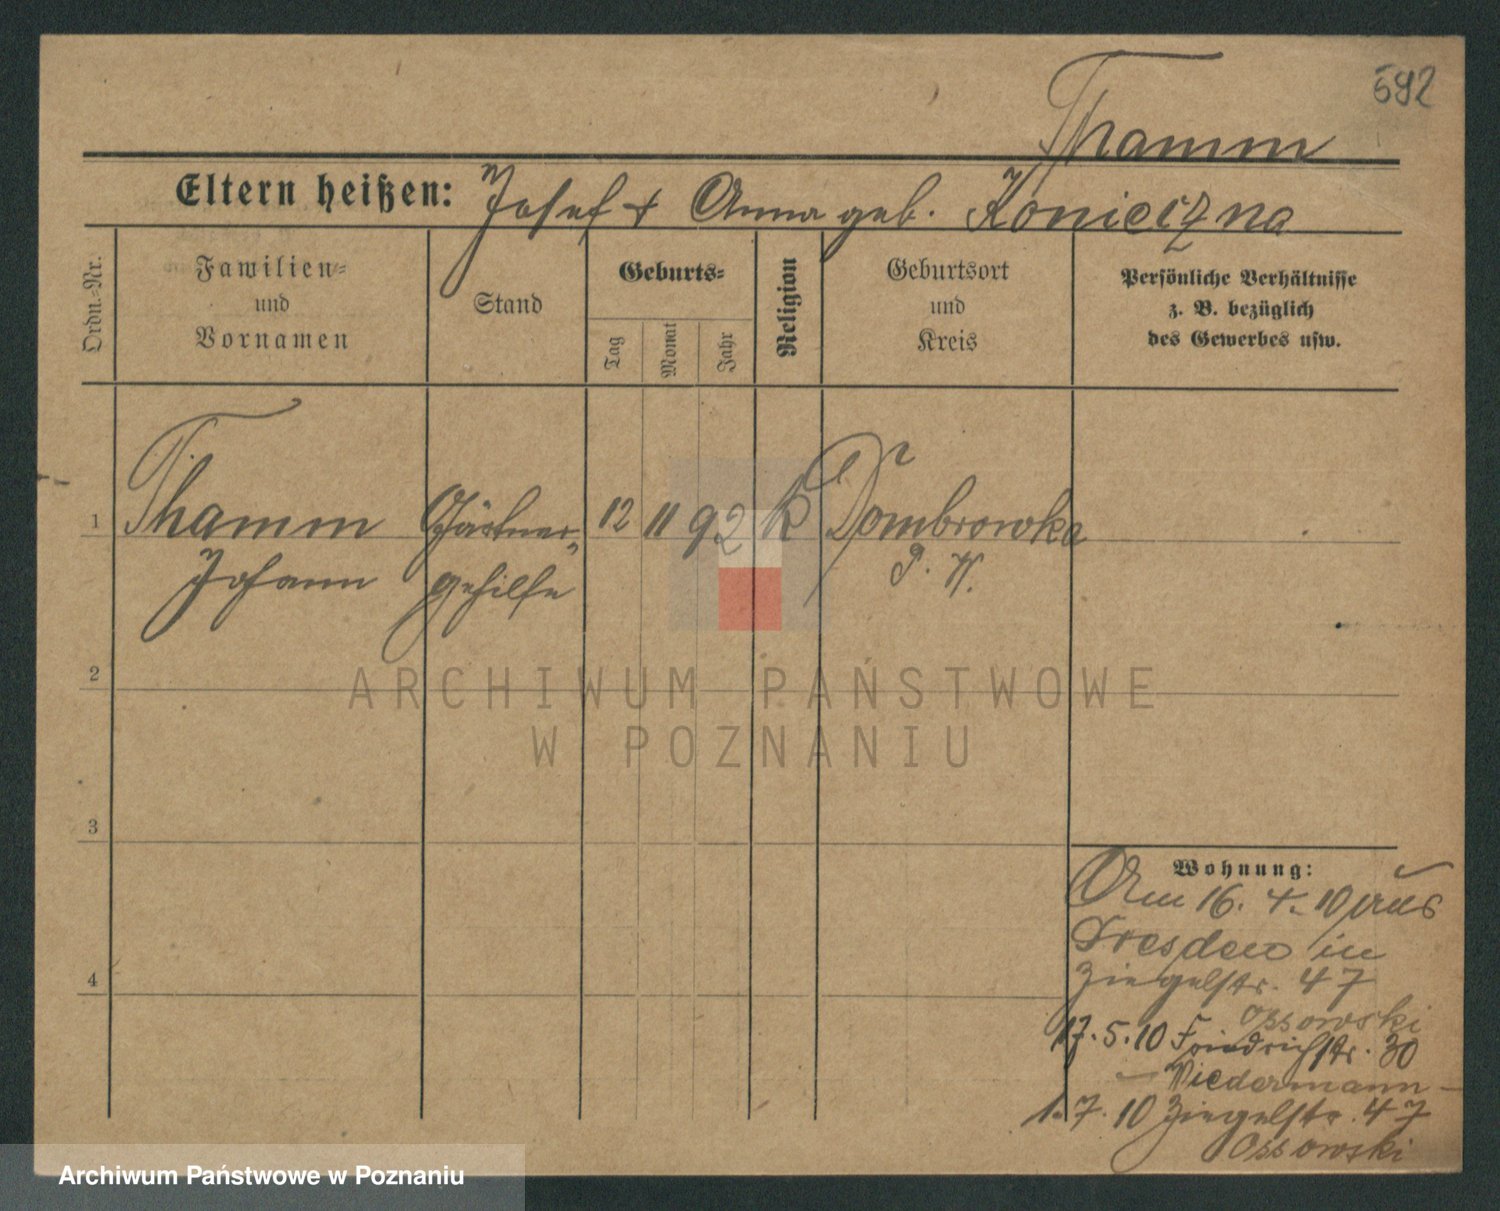 592
Thamm
Eltern heißen: Josef + Anna geb. Konieczna
Ordn.-Nr.
Familien-
und
Vornamen
Stand
Geburts-
Tag
Monat
Jahr
Religion
Geburtsort
und
Kreis
Persönliche Verhältnisse
z. B. bezüglich
des Gewerbes usw.
1 Thamm Gärtner- 12 11 92 K Dombrowka
Johann gehilfe P. W.
2
3
4
Wohnung:
Am 16. 4. 10 aus
Dresden in
Ziegelstr. 47
Ossowski
17. 5. 10 Friedrichstr. 30
– Niedermann –
1. 7. 10 Ziegelstr. 47
Ossowski
ARCHIWUM PAŃSTWOWE
W POZNANIU
Archiwum Państwowe w Poznaniu